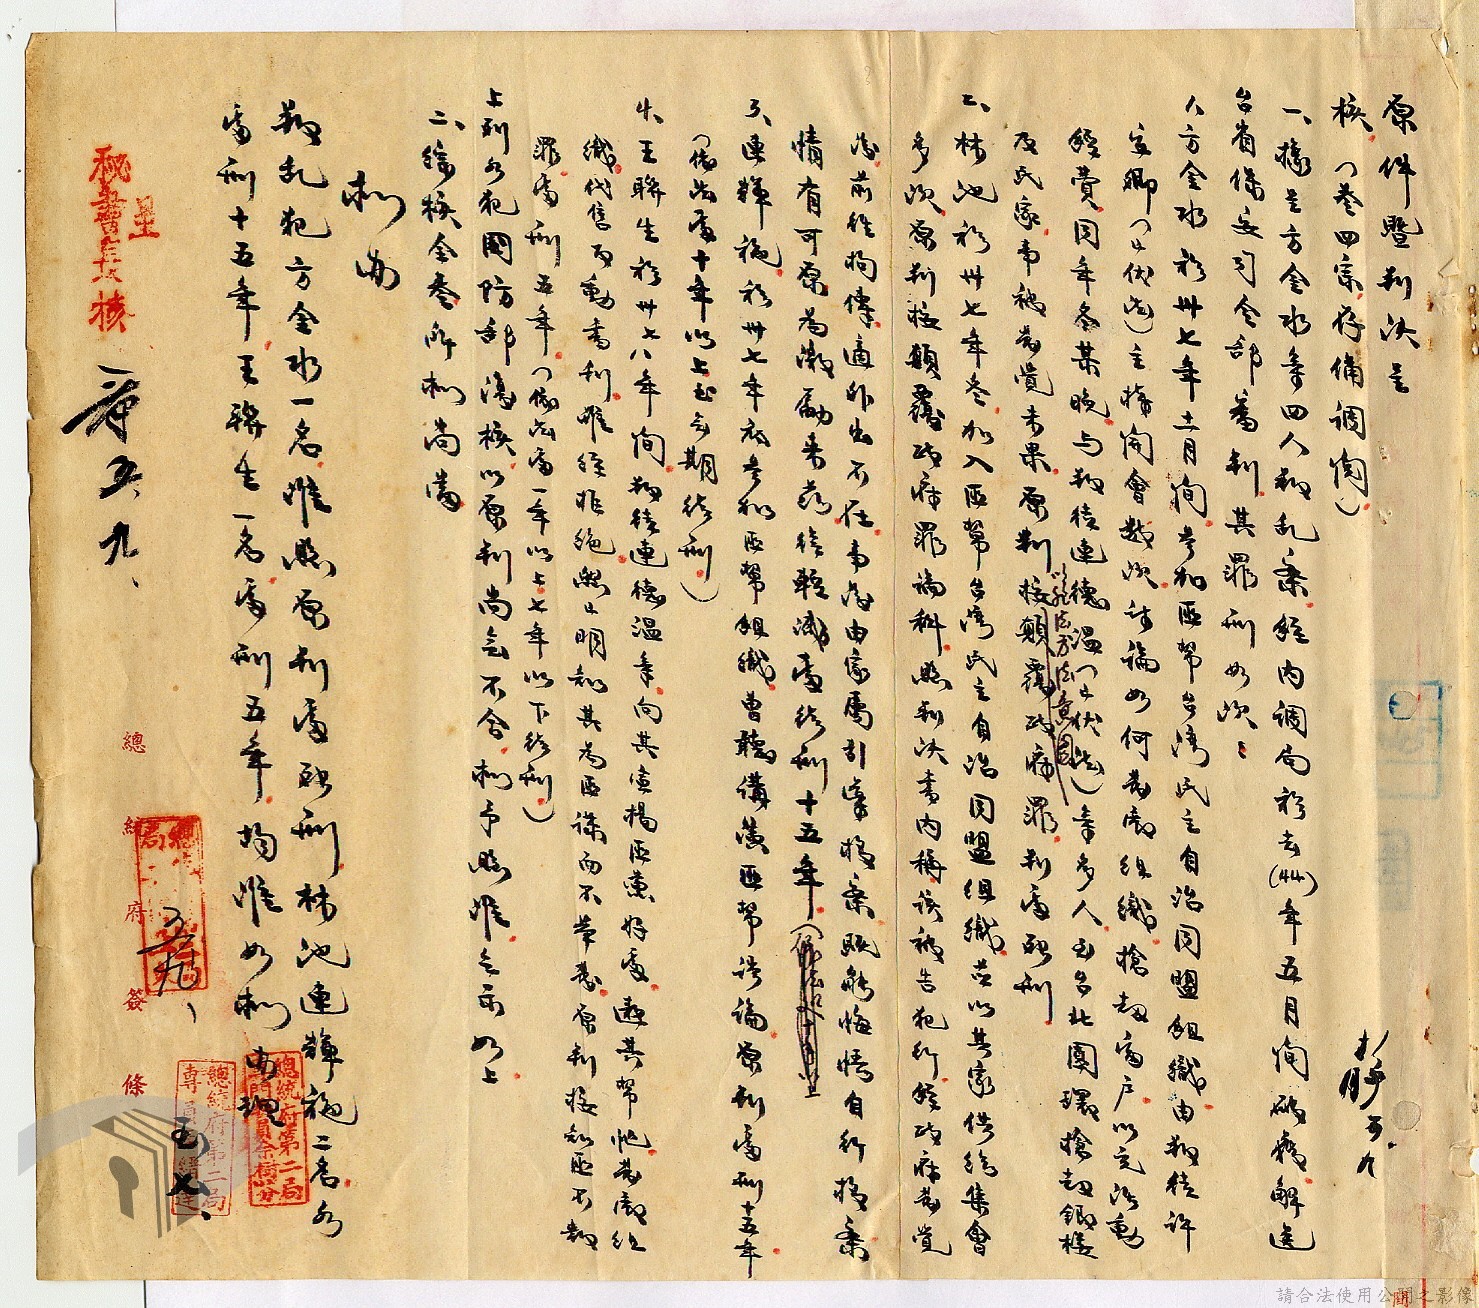 原件暨判決呈
核(卷四宗存備調閱)
一、據呈方金水等四人叛亂案經內調局於去(卅)年五月間破獲解送
台省保安司令部審判其罪刑如次:
1、方金水於卅七年十二月間參加匪幫台灣民主自治同盟組織由叛徒許
主鄉(已伏法)主持開會數次討論如何發動組織搶劫富戶以充活動
經費同年冬某晚与叛徒連德溫(已伏法)等多人至台北圓環搶劫鄉樓
及民家韦被發覺未果原判按以非法方法意圖顛覆政府罪判處死刑
2、林池於卅七年冬加入匪幫台灣民主自治同盟組織並以其家供給集會
多次原判按顛覆政府罪論科照判決書內稱該被告犯行經政府發覺
後前往拘傳適外出不在事後由家屬引導投案既能悔悟自行投案
情有可原為激勵來茲從輕減處徒刑十五年
3、連輝福於卅七年底參加匪幫組織曾聽講演匪幫討論原判處刑十五年
(依法處十年以上無期徒刑)
4、王聯生於卅七八年間叛徒連德溫等向其宣揚匪黨好處邀其幫忙發動組
織代售而動書刊雖經拒絕然已明知其為匪諜而不舉發原判按知匪不報
罪處刑五年(依法處一年以上七年以下徒刑)
上列各犯國防部復核以原判尚無不合擬予照准各示如上
二、綜核全卷所擬尚當
擬由
叛乱犯方金水一名准照原判處死刑林池連輝福二名各
處刑十五年王聯生一名處刑五年均准如擬辦理
呈
秘書長核
五、九、
總統府簽條
總統府第二局
專門委員余樹芬
總統府第二局
專員
五、九
五、七、
請合法使用公開之影像